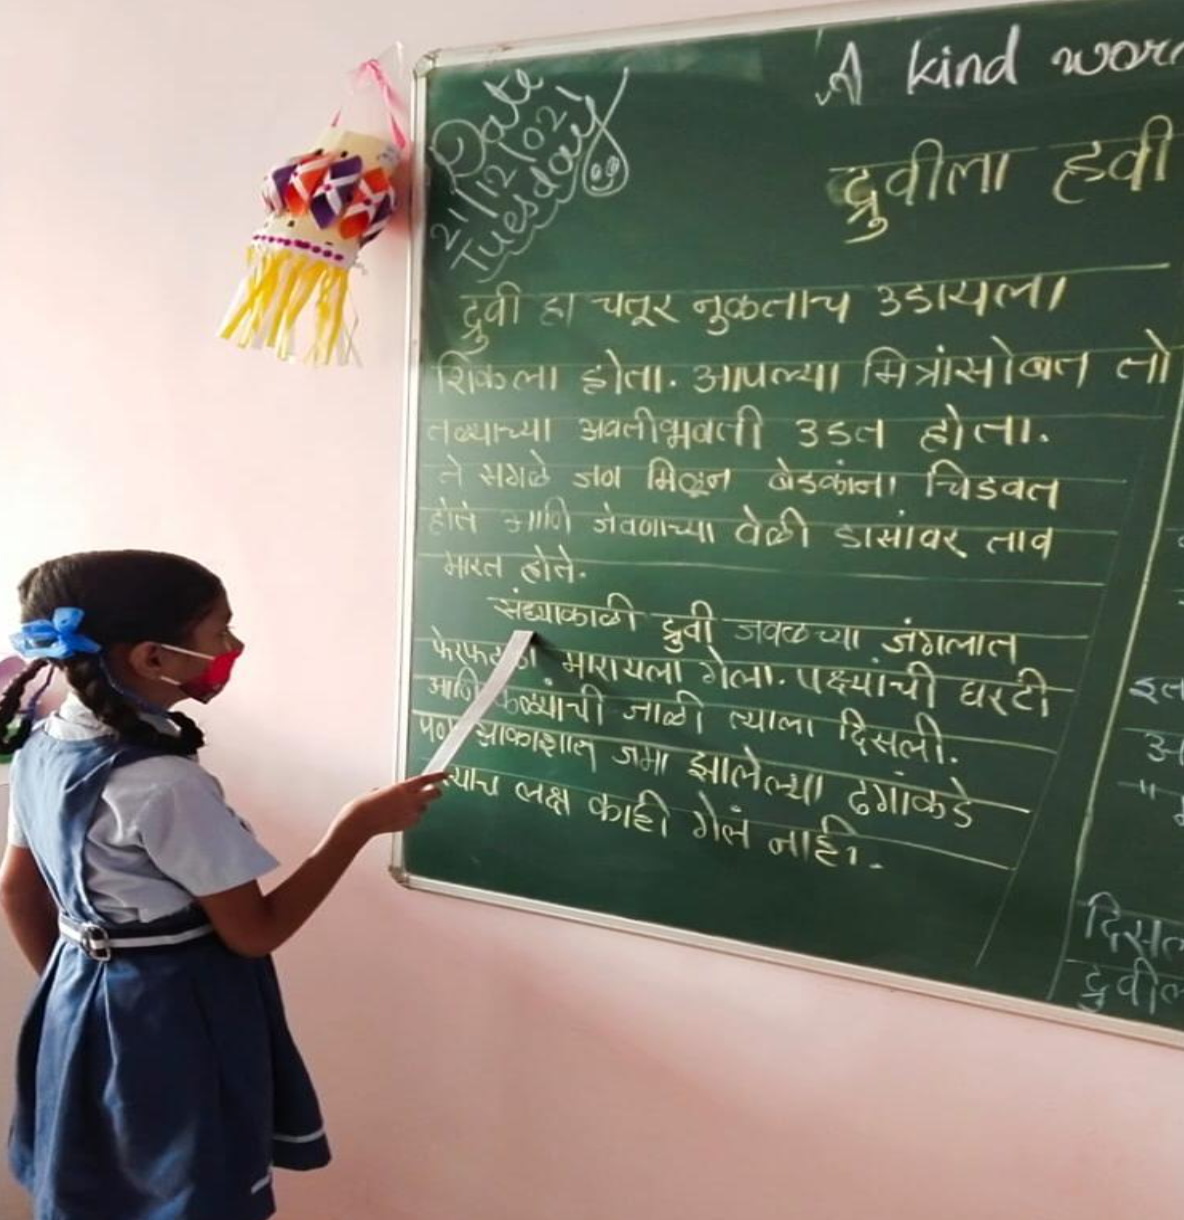 Date
21/12/021
Tuesday
A kind
द्रुवीला हवी
द्रुवी हा चतूर नुकताच उडायला
शिकला होता. आपल्या मित्रांसोबत तो
तळ्याच्या अवतीभवती उडत होता.
ते सगळे जण मिळून बेडकांना चिडवत
होते आणि जेवणाच्या वेळी डासांवर ताव
मारत होते.
संध्याकाळी द्रुवी जवळच्या जंगलात
मारायला गेला. पक्ष्यांची घरटी
आणि कोळ्यांची जाळी त्याला दिसली.
पण आकाशात जमा झालेल्या ढगांकडे
त्याच लक्ष काही गेलं नाही.